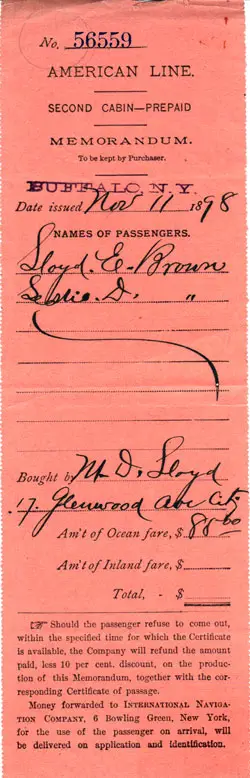 No. 56559
AMERICAN LINE.
SECOND CABIN—PREPAID
MEMORANDUM.
To be kept by Purchaser.
BUFFALO, N.Y.
Date issued Nov 11 1898
NAMES OF PASSENGERS.
Lloyd. E. Brown
Leslie. D. "
Bought by M. D. Lloyd
17. Glenwood Ave City
Am't of Ocean fare, $ 88.00
Am't of Inland fare, $
Total, - $
☞ Should the passenger refuse to come out,
within the specified time for which the Certificate
is available, the Company will refund the amount
paid, less 10 per cent. discount, on the produc-
tion of this Memorandum, together with the cor-
responding Certificate of passage.
Money forwarded to INTERNATIONAL NAVIGA-
TION COMPANY, 6 Bowling Green, New York,
for the use of the passenger on arrival, will
be delivered on application and identification.